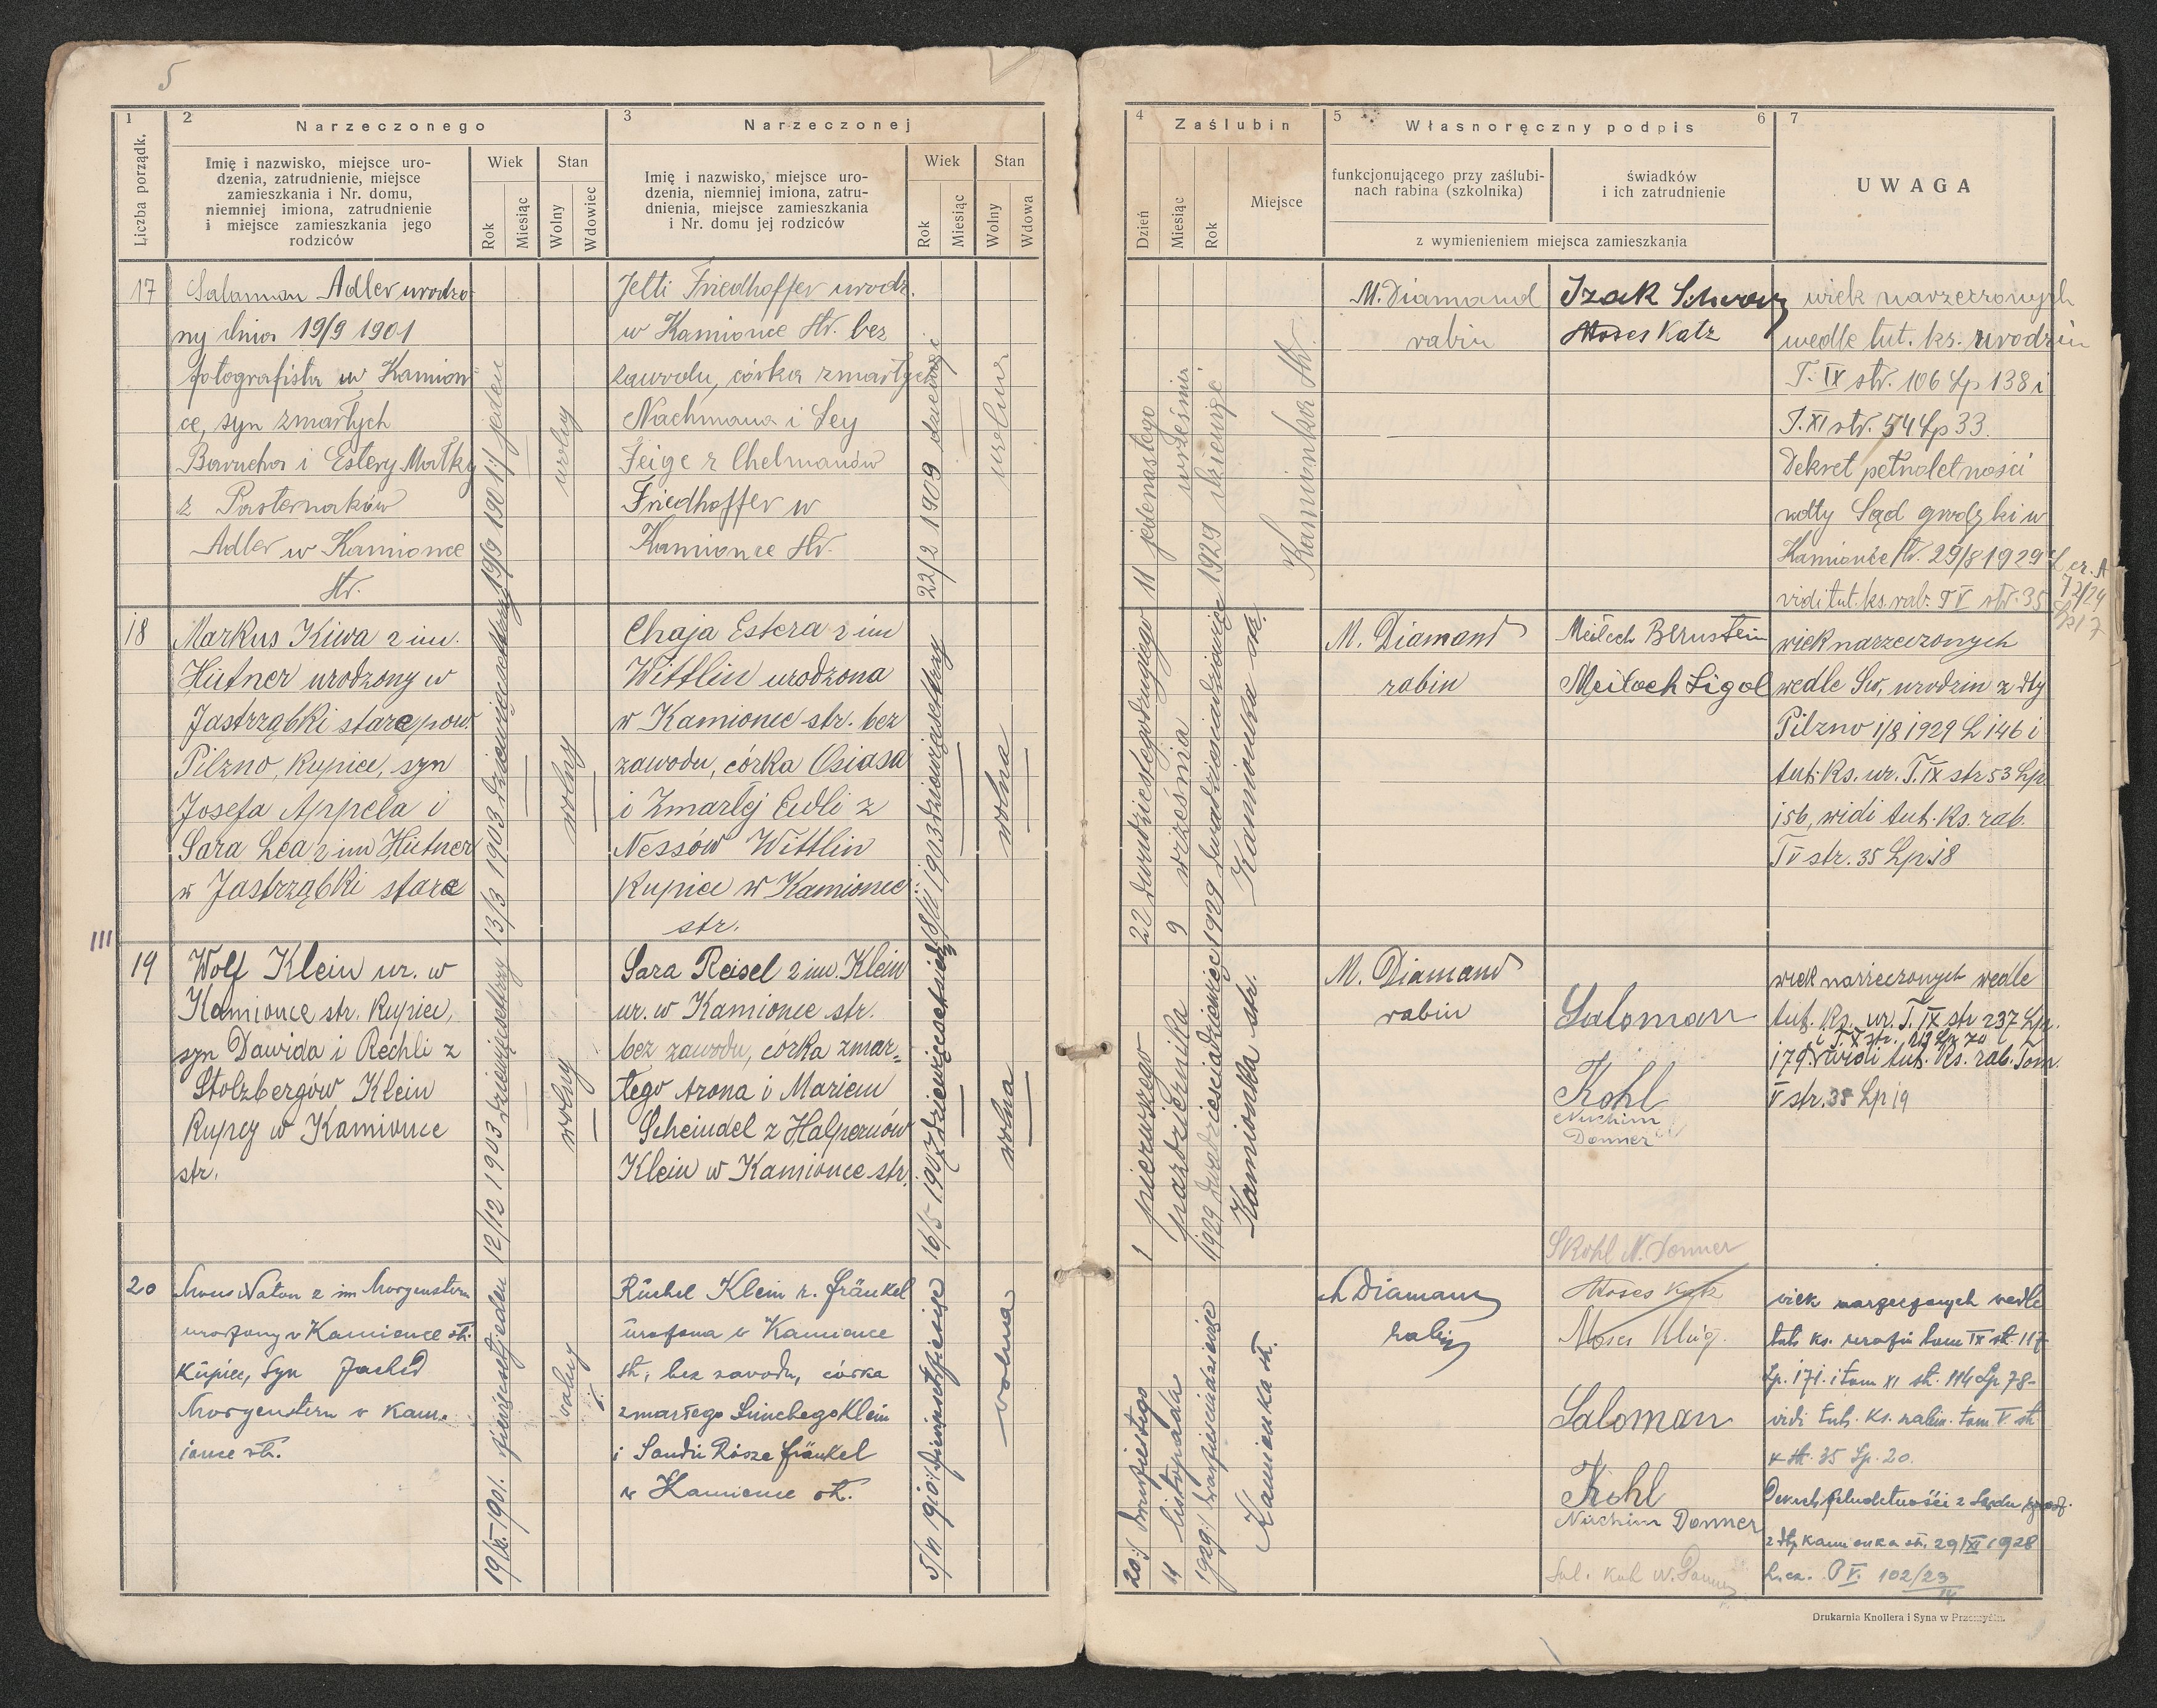 5
1
2
Narzeczonego
3
Narzeczonej
Liczba porządk.
Imię i nazwisko, miejsce uro-
dzenia, zatrudnienie, miejsce
zamieszkania i Nr. domu,
niemniej imiona, zatrudnienie
i miejsce zamieszkania jego
rodziców
Wiek
Stan
Rok
Miesiąc
Wolny
Wdowiec
Imię i nazwisko, miejsce uro-
dzenia, niemniej imiona, zatru-
dnienia, miejsce zamieszkania
i Nr. domu jej rodziców
Wiek
Stan
Rok
Miesiąc
Wolny
Wdowa
17
Salaman Adler urodzo-
ny dnia 19/9 1901
fotografista w Kamion
ce, syn zmarłych
Barucha i Estery Małky
z Pasternaków
Adler w Kamionce
str.
19/9 1901 jeden
wolny
Jetti Friedhoffer urodz.
w Kamionce str. bez
zawodu, córka zmarłych
Nachmana i Ley
Feige z Chelmanów
Friedhoffer w
Kamionce str.
22/2 1909 dziewięć
wolna
18
Markus Kiwa 2 im.
Hütner urodzony w
Jastrząbki stare pow.
Pilzno, kupiec, syn
Josefa Appela i
Sara Lea 2 im Hütner
w Jastrząbki stare
13/3 1903 dziewięćsettrzy
wolny
Chaja Estera 2 im
Wittlin urodzona
w Kamionce str. bez
zawodu, córka Osiasa
i Zmarłej Eudli z
Nessów Wittlin
kupiec w Kamionce
str.
1903 dziewięćsettrzy
wolna
III
19
Wolf Klein ur. w
Kamionce str. kupiec,
syn Dawida i Rechli z
Stolzbergów Klein
kupcy w Kamionce
str.
12/12 1903 dziewięćsettrzy
wolny
Sara Reisel 2 im. Klein
ur. w Kamionce str.
bez zawodu, córka zmar-
łego Arona i Mariem
Scheindel z Halpernów
Klein w Kamionce str.
16/5 1907 dziewięćsetsiedm
wolna
20
Naton 2 im Morgenstern
urodzony w Kamionce st.
kupiec, syn
Morgenstern w Kam-
ionce st.
19/IX 1901. dziewięćsetjeden
wolny
Rüchel Klein r. Fränkel
urodzona w Kamionce
st, bez zawodu, córka
zmarłego Simchego Klein
i Sandii Rosze Fränkel
w Kamionce st.
5/VI 1910
wolna
4
Zaślubin
5
Własnoręczny podpis
6
7
Dzień
Miesiąc
Rok
Miejsce
funkcjonującego przy zaślubi-
nach rabina (szkolnika)
świadków
i ich zatrudnienie
z wymienieniem miejsca zamieszkania
UWAGA
11 jedenastego
wrzesnia
1929 dziewięć
Kamionka str.
M. Diamand
rabin
Izak Schwarz
Moses Katz
wiek narzeczonych
wedle tut. ks. urodzin
T. IX str. 106 Lp 138 i
T. XI str. 54 Lp 33.
Dekret pełnoletności
wdty Sąd grodzki w
Kamionce str. 29/8 1929 L cz. A
vidi tut. ks. rab. T V str. 35
Lp 17
22 dwudziestegodrugiego
9 września
1929 dwadzieściadziewięć
Kamionka str.
M. Diamand
rabin
Meilech Bernstein
Meiloch Ligol
wiek narzeczonych
wedle Św. urodzin z dty
Pilzno 1/8 1929 L 146 i
tut. ks. ur. T. IX str 53 Lp.
156, widi tut. ks. rab.
T V str. 35 Lp. 18
1 pierwszego
października
1929 dwadzieściadziewięć
Kamionka str.
M. Diamand
rabin
Saloman
Kohl
Nuchim
Donner
S Kohl N. Donner
wiek narzeczonych wedle
tut. ks. ur. T. IX str 237 Lp.
179. widi tut. ks. rab. Tom.
V str. 35 Lp 19
20 dwudziestego
11 listopada
1929 dwadzieściadziewięć
Kamionka st.
M Diamand
rabin
Moses Katz
Moses Klug.
Saloman
Kohl
Nuchim Donner
Sal. Kohl N. Donner
wiek narzeczonych wedle
tut. ks. urodzin tom IX st. 117
Lp. 171. i tom XI st. 114 Lp 78-
vidi tut. ks. rabin. tom V st
st. 35 Lp. 20.
Dekret pełnoletności z Sądu grodz.
z dty Kamionka st. 29/XI 1928
L. cz. P V. 102/23
Drukarnia Knollera i Syna w Przemyślu.